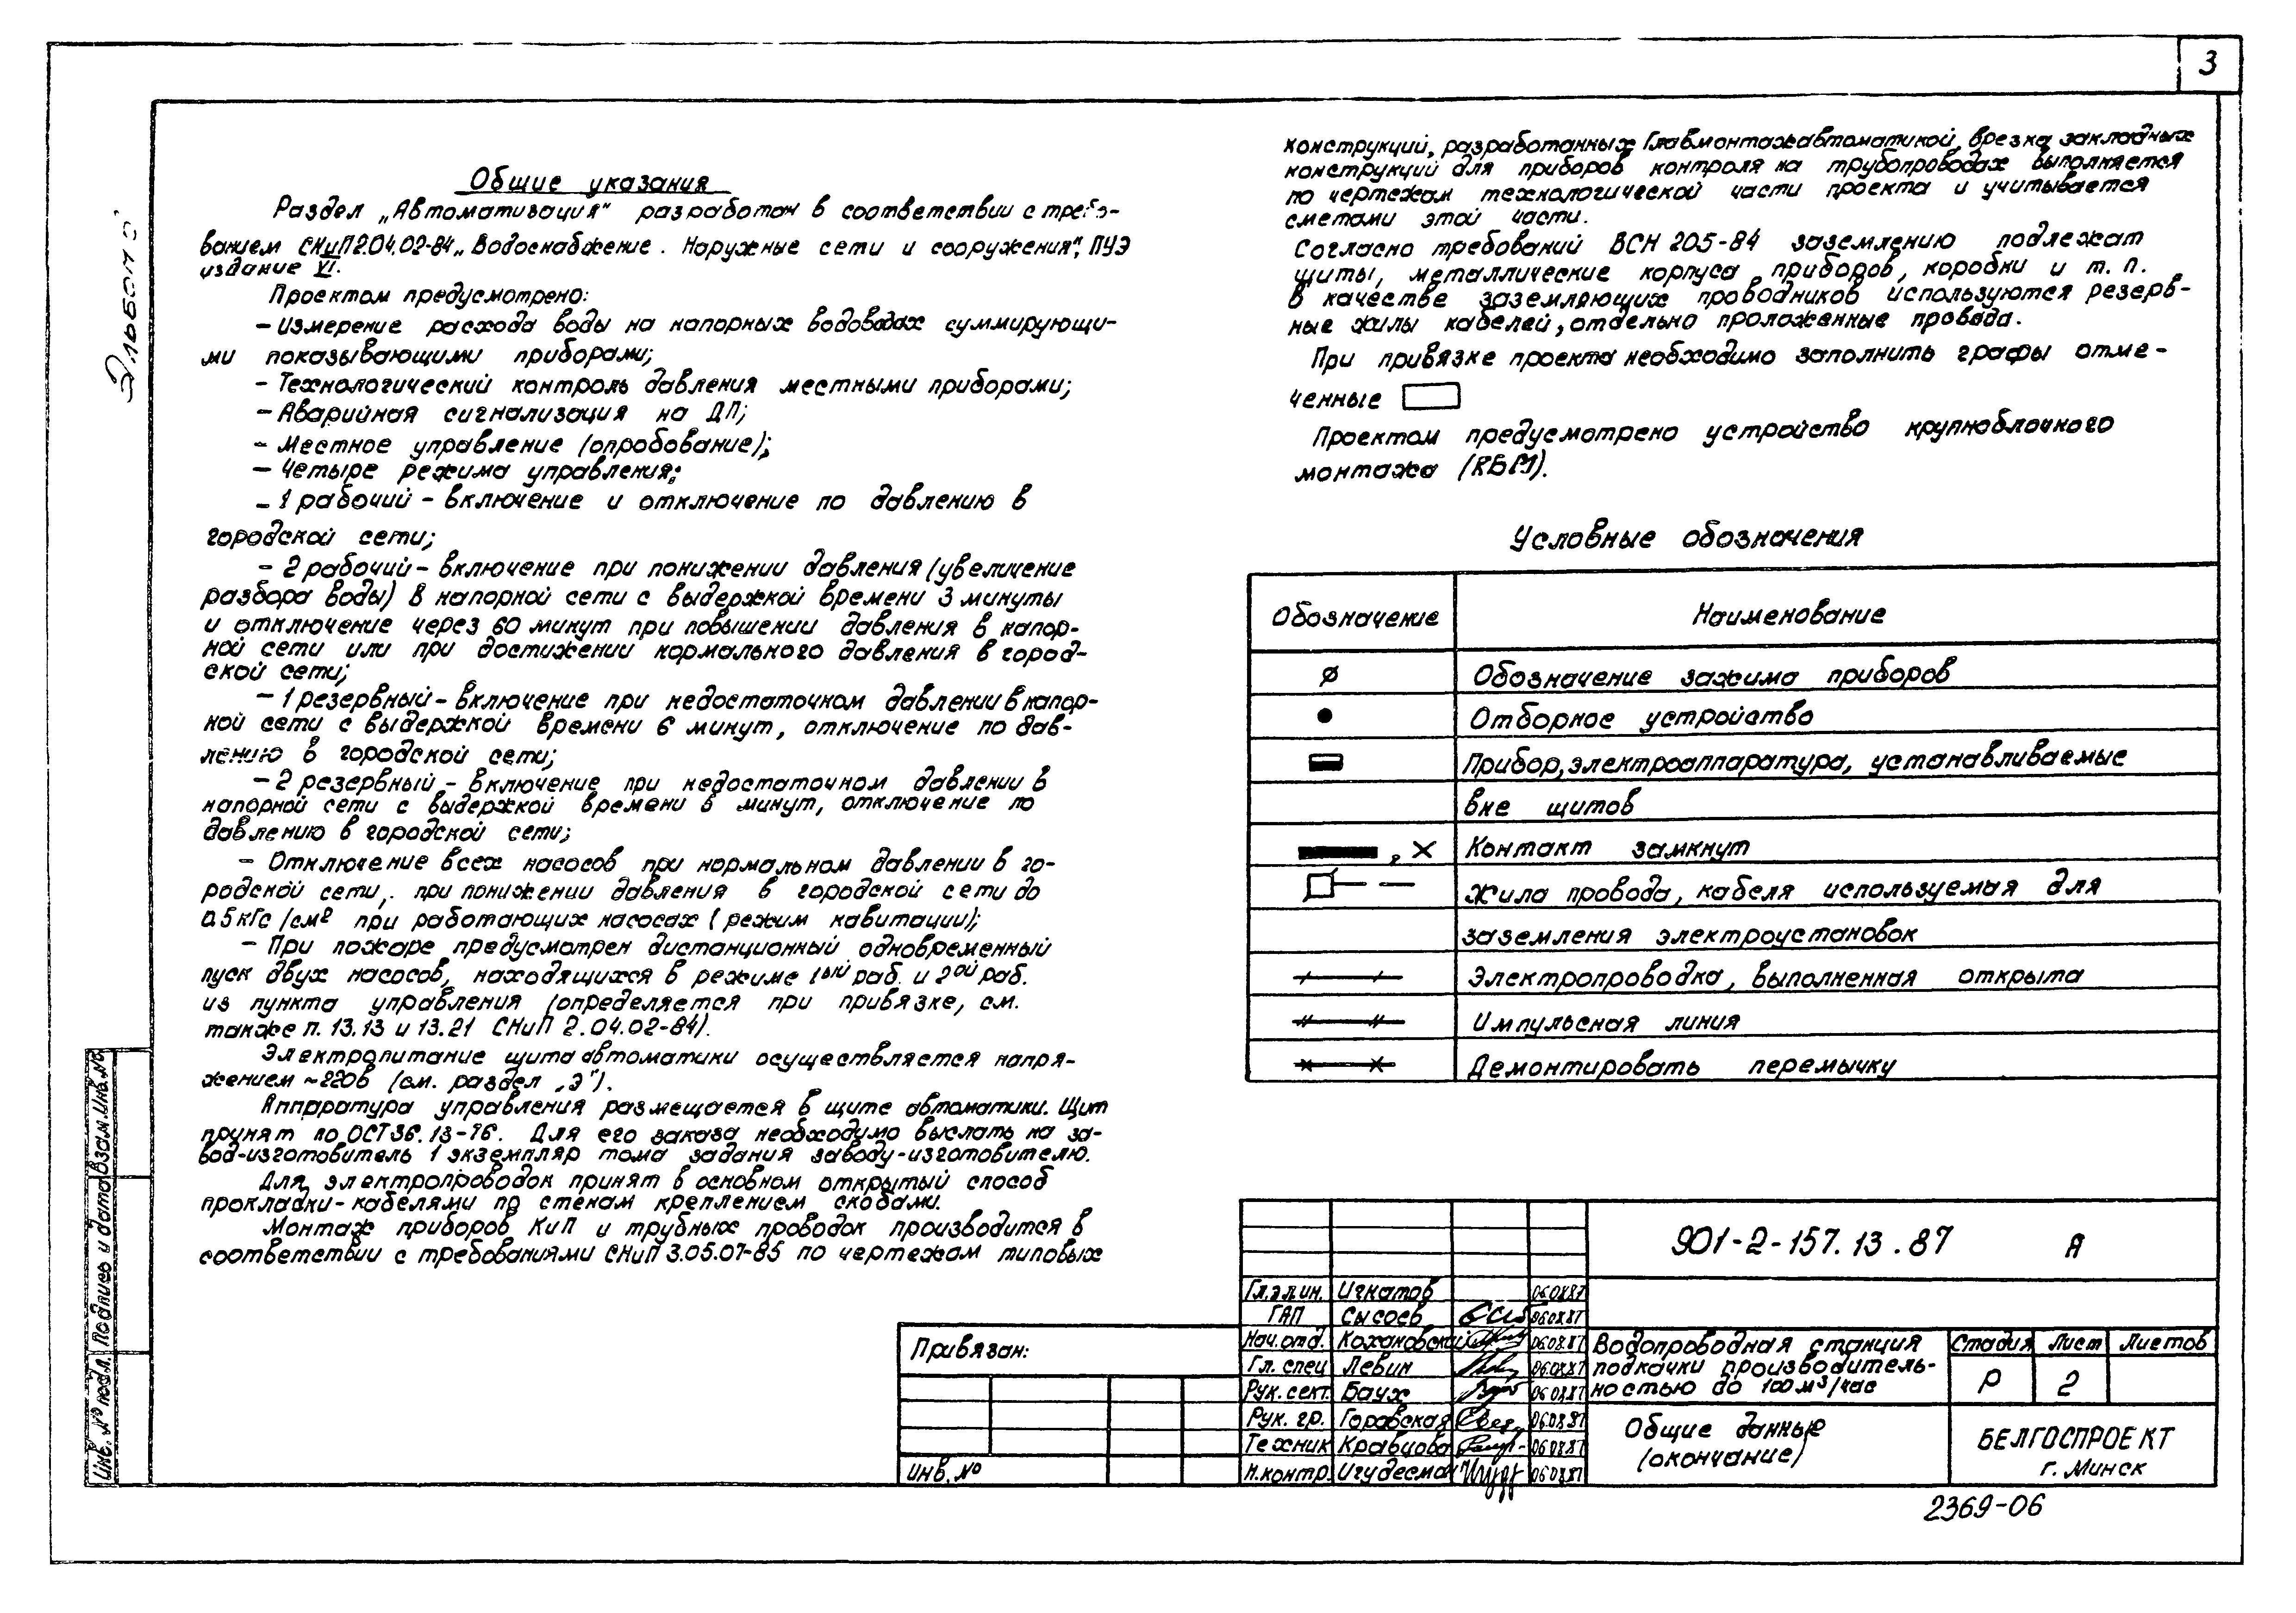 3
Общие указания
Раздел „Автоматизация" разработан в соответствии с требо-
ванием СНиП 2.04.02-84 „Водоснабжение. Наружные сети и сооружения", ПУЭ
издание VI.
Проектом предусмотрено:
- Измерение расхода воды на напорных водоводах суммирующи-
ми показывающими приборами;
- Технологический контроль давления местными приборами;
- Аварийная сигнализация на ДП;
- Местное управление (опробование);
- Четыре режима управления:
- 1 рабочий - включение и отключение по давлению в
городской сети;
- 2 рабочий - включение при понижении давления (увеличение
разбора воды) в напорной сети с выдержкой времени 3 минуты
и отключение через 60 минут при повышении давления в напор-
ной сети или при достижении нормального давления в город-
ской сети;
- 1 резервный - включение при недостаточном давлении в напор-
ной сети с выдержкой времени 6 минут, отключение по дав-
лению в городской сети;
- 2 резервный - включение при недостаточном давлении в
напорной сети с выдержкой времени 6 минут, отключение по
давлению в городской сети;
- Отключение всех насосов при нормальном давлении в го-
родской сети, при понижении давления в городской сети до
0.5 кгс/см² при работающих насосах (режим кавитации);
- При пожаре предусмотрен дистанционный одновременный
пуск двух насосов, находящихся в режиме 1ый раб. и 2ой раб.
из пункта управления (определяется при привязке, см.
также п. 13.13 и 13.21 СНиП 2.04.02-84).
Электропитание щита автоматики осуществляется напря-
жением ~220в (см. раздел „Э").
Аппаратура управления размещается в щите автоматики. Щит
принят по ОСТ 36.13-76. Для его заказа необходимо выслать на за-
вод-изготовитель 1 экземпляр тома задания заводу-изготовителю.
Для электропроводок принят в основном открытый способ
прокладки - кабелями по стенам креплением скобами.
Монтаж приборов КиП и трубных проводок производится в
соответствии с требованиями СНиП 3.05.07-85 по чертежам типовых
конструкций, разработанных Главмонтажавтоматикой, врезка закладных
конструкций для приборов контроля на трубопроводах выполняется
по чертежам технологической части проекта и учитывается
сметами этой части.
Согласно требований ВСН 205-84 заземлению подлежат
щиты, металлические корпуса приборов, коробки и т. п.
В качестве заземляющих проводников используются резерв-
ные жилы кабелей, отдельно проложенные провода.
При привязке проекта необходимо заполнить графы отме-
ченные
Проектом предусмотрено устройство крупноблочного
монтажа (КБМ).
Условные обозначения
Обозначение Наименование
Обозначение зажима приборов
Отборное устройство
Прибор, электроаппаратура, устанавливаемые
вне щитов
, × Контакт замкнут
Жила провода, кабеля используемая для
заземления электроустановок
Электропроводка, выполненная открыта
Импульсная линия
Демонтировать перемычку
Альбом
Взам.инв.№
Подпись и дата
Инв. № подл.
901-2-157.13.87 А
Гл.эл.ин. Игнатов 06.08.87
ГАП Сысоев 06.08.87
Нач. отд. Кохановский 06.08.87
Гл. спец Левин 06.08.87
Рук. сект. Баух 06.08.87
Рук. гр. Горавская 06.08.87
Техник Кравцова 06.08.87
Н.контр. Игудесман 06.08.87
Привязан:
Инв. №
Водопроводная станция
подкачки производитель-
ностью до 100 м³/час
Стадия Лист Листов
Р 2
Общие данные
(окончание)
БЕЛГОСПРОЕКТ
г. Минск
2369-06